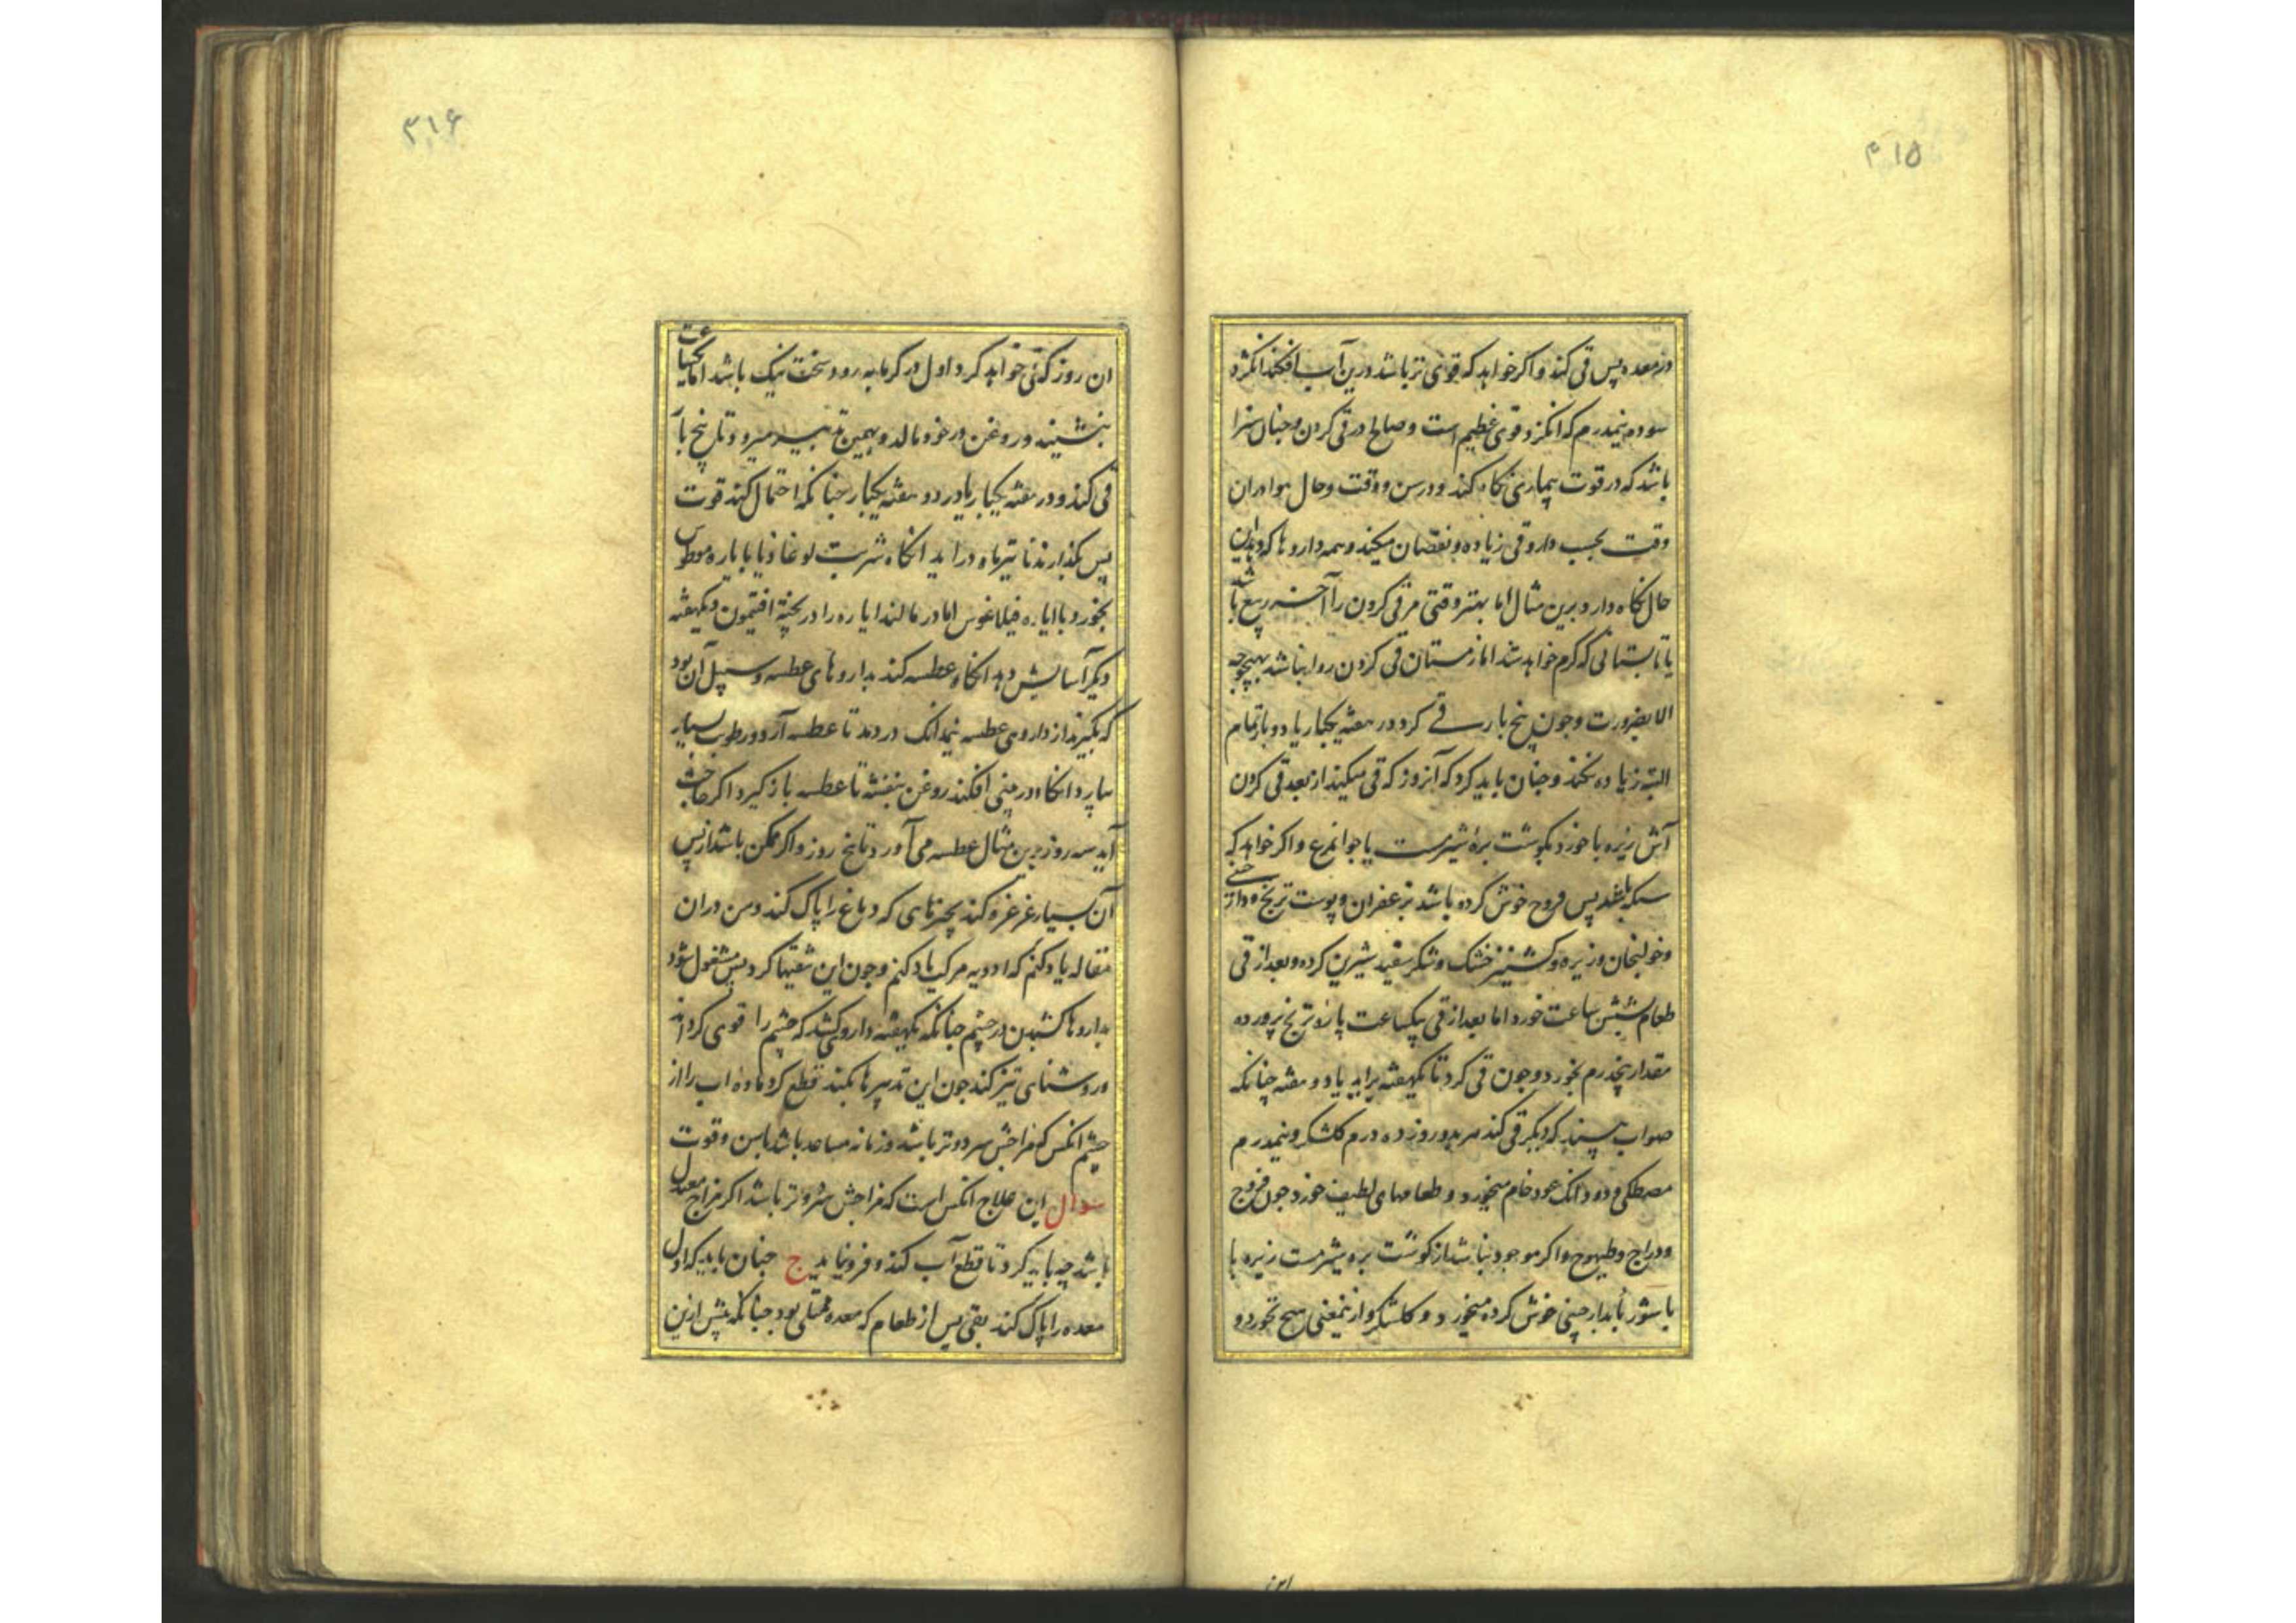 ۳۱۵
در معده پس قی کند و اکر خواهد که قوی تر باشد درین آب افکند انکژد
سوده نیمدرم که انکژد قوی عظیم است و صالح در قی کردن و جنان سزا
باشد که در قوت بیماری نکاه کند و در سن و وقت و حال هوا و ران
وقت بحسب دارو قی زیاده و نقصان میکند و همه داروها که دهد این
حال نکاه دارد برین مثال اما بهتر وقتی مر قی کردن را آخر ربیع باشد
یا تابستانی که کرم خواهد شد اما زمستان قی کردن روا نباشد بهیچوجه
الا بضرورت وجون پنج بار قی کرد در هفته یکبار یا دو بار تمام
البته زیاده نکند و جنان باید کرد که آنروز که قی میکند از بعد قی کردن
آش زیره با خورد بکوشت بره شیرمست یا جوانمرغ و اکر خواهد که
سکبا باشد پس فروج خوش کرده باشد بزعفران و پوست ترنج و دار چینی
و خولنجان و زیره و کشنیز خشک و شکر سفید شیرین کرده و بعد از قی
طعام شش ساعت خورد اما بعد از قی یکساعت پارۀ ترنج پرورده
مقدار پنجدرم بخورد و جون قی کرد تا یکهفته براید یا دو هفته چنانکه
صواب بیند که دیکر قی کند هر بدو روز ده درم کلشکر و نیمدرم
مصطکی و دو دانک عود خام میخورد و طعامهای لطیف خورد جون فروج
و دراج و طیهوج و اکر موجود نباشد از کوشت بره شیرمست زیره با
یا شوربا بدارچینی خوش کرده میخورد و کلشکر و ازینمعنی هیچ نخورد و
۳۱۶
ان روز که قی خواهد کرد اول در کرمابه رود سخت نیک باشد اما یکساعت
بنشیند و روغن در خود مالد و بهمین تدبیر میرود تا پنج بار
قی کند و در هفته یکبار یا در دو هفته یکبار جنانکه احتمال کند قوت
پس بکذارند تا تیرماه دراید انکاه شربت لوغاذیا یا یاره موطوس
بخورد یا ایاره فیلاغوس اما در مالند ایاره را در پخته افتیمون و یکهفته
دیکر آسایش دهد انکاه عطسه کند بداروهای عطسه و سبیل آن بود
که بکیرند از داروی عطسه نیمدانک در دمد تا عطسه آرد و رطوبت بسیار
بیارد انکاه در بینی افکند روغن بنفشه تا عطسه باز کیرد اکر حاجت
آید سه روز برین مثال عطسه می آورد تا پنج روز و اکر ممکن باشد از پس
آن بسیار غرغره کند بچیزهای که دماغ را پاک کند و من دران
مقاله یاد کنم که ادویه مرکب یاد کنم وجون این تنقیتها کرد پس مشغول شود
بداروها کشیدن در چشم جنانکه یکهفته دارو کشد که چشم را قوی کرداند
و روشنای تیز کند جون این تدبیرها بکند قطع کرد ماده اب را از
چشم انکس که مزاجش سرد و تر باشد و زمانه مساعد باشد با سن و قوت
سوال این علاج انکس است که مزاجش سرد و تر باشد اکر مزاج معتدل
باشد چه باید کرد تا قطع آب کند و فرونیاید ج جنان باید که اول
معده را پاک کند بقی پس از طعام که معده ممتلی بود جنانکه پیش ازین